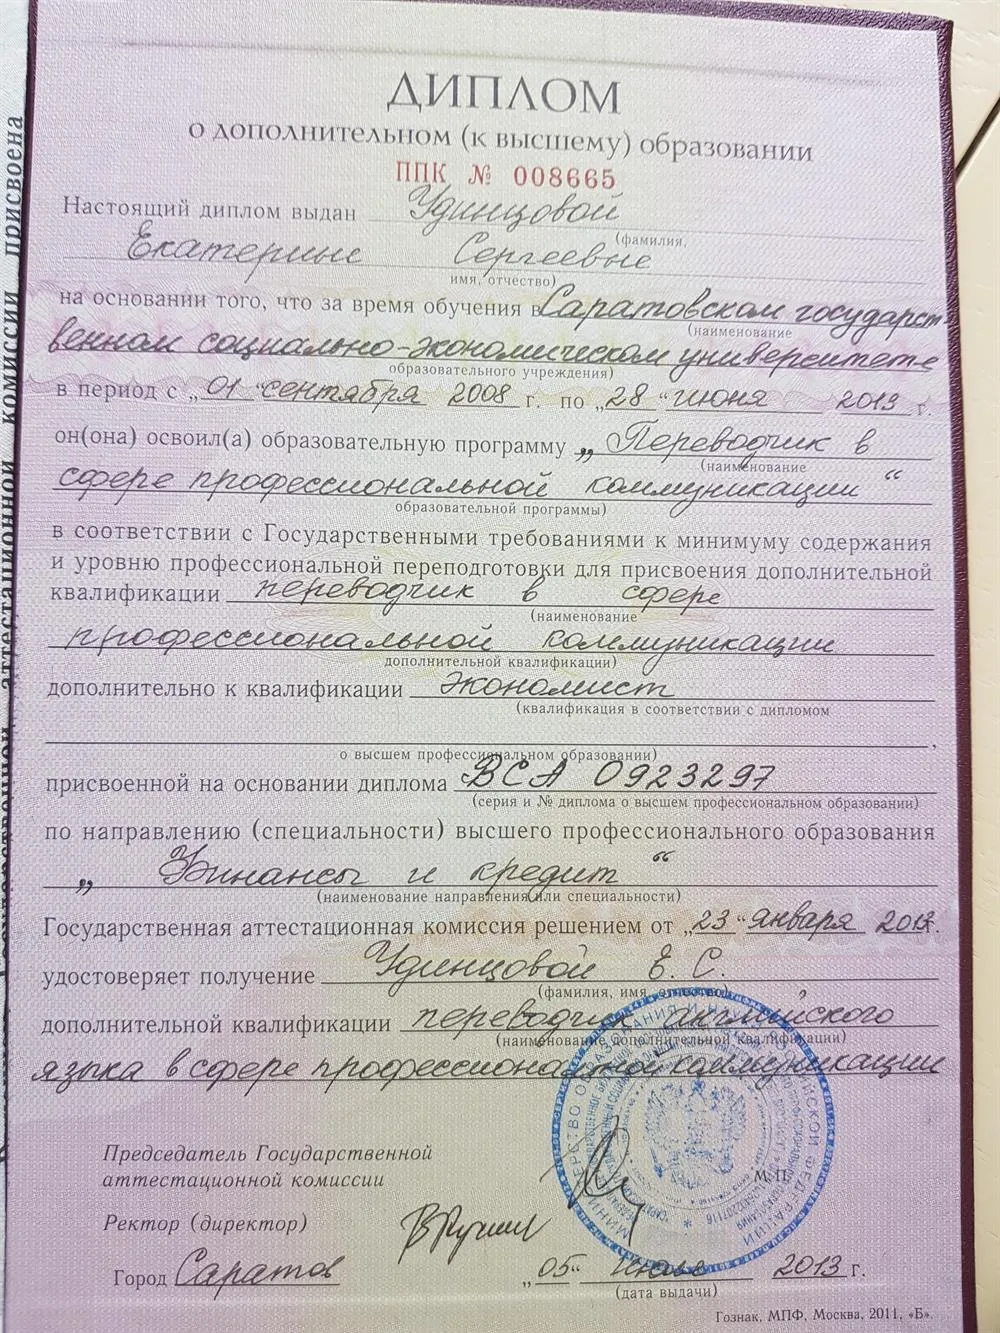 ДИПЛОМ
о дополнительном (к высшему) образовании
ППК № 008665
Настоящий диплом выдан Удинцовой
(фамилия,
Екатерине Сергеевне
имя, отчество)
на основании того, что за время обучения в Саратовском государст-
(наименование
венном социально-экономическом университете
образовательного учреждения)
в период с „01“ сентября 2008 г. по „28“ июня 2013 г.
он(она) освоил(а) образовательную программу „Переводчик в
(наименование
сфере профессиональной коммуникации“
образовательной программы)
в соответствии с Государственными требованиями к минимуму содержания
и уровню профессиональной переподготовки для присвоения дополнительной
квалификации переводчик в сфере
(наименование
профессиональной коммуникации
дополнительной квалификации)
дополнительно к квалификации экономист
(квалификация в соответствии с дипломом
о высшем профессиональном образовании)
присвоенной на основании диплома ВСА 0923297
(серия и № диплома о высшем профессиональном образовании)
по направлению (специальности) высшего профессионального образования
„Финансы и кредит“
(наименование направления или специальности)
Государственная аттестационная комиссия решением от „23“ января 2013 г.
удостоверяет получение Удинцовой Е. С.
(фамилия, имя, отчество)
дополнительной квалификации переводчик английского
(наименование дополнительной квалификации)
языка в сфере профессиональной коммуникации
Председатель Государственной
аттестационной комиссии
М.П.
Ректор (директор)
Город Саратов
„05“ июля 2013 г.
(дата выдачи)
Гознак, МПФ, Москва, 2011, «Б».
аттестационной комиссии присвоена